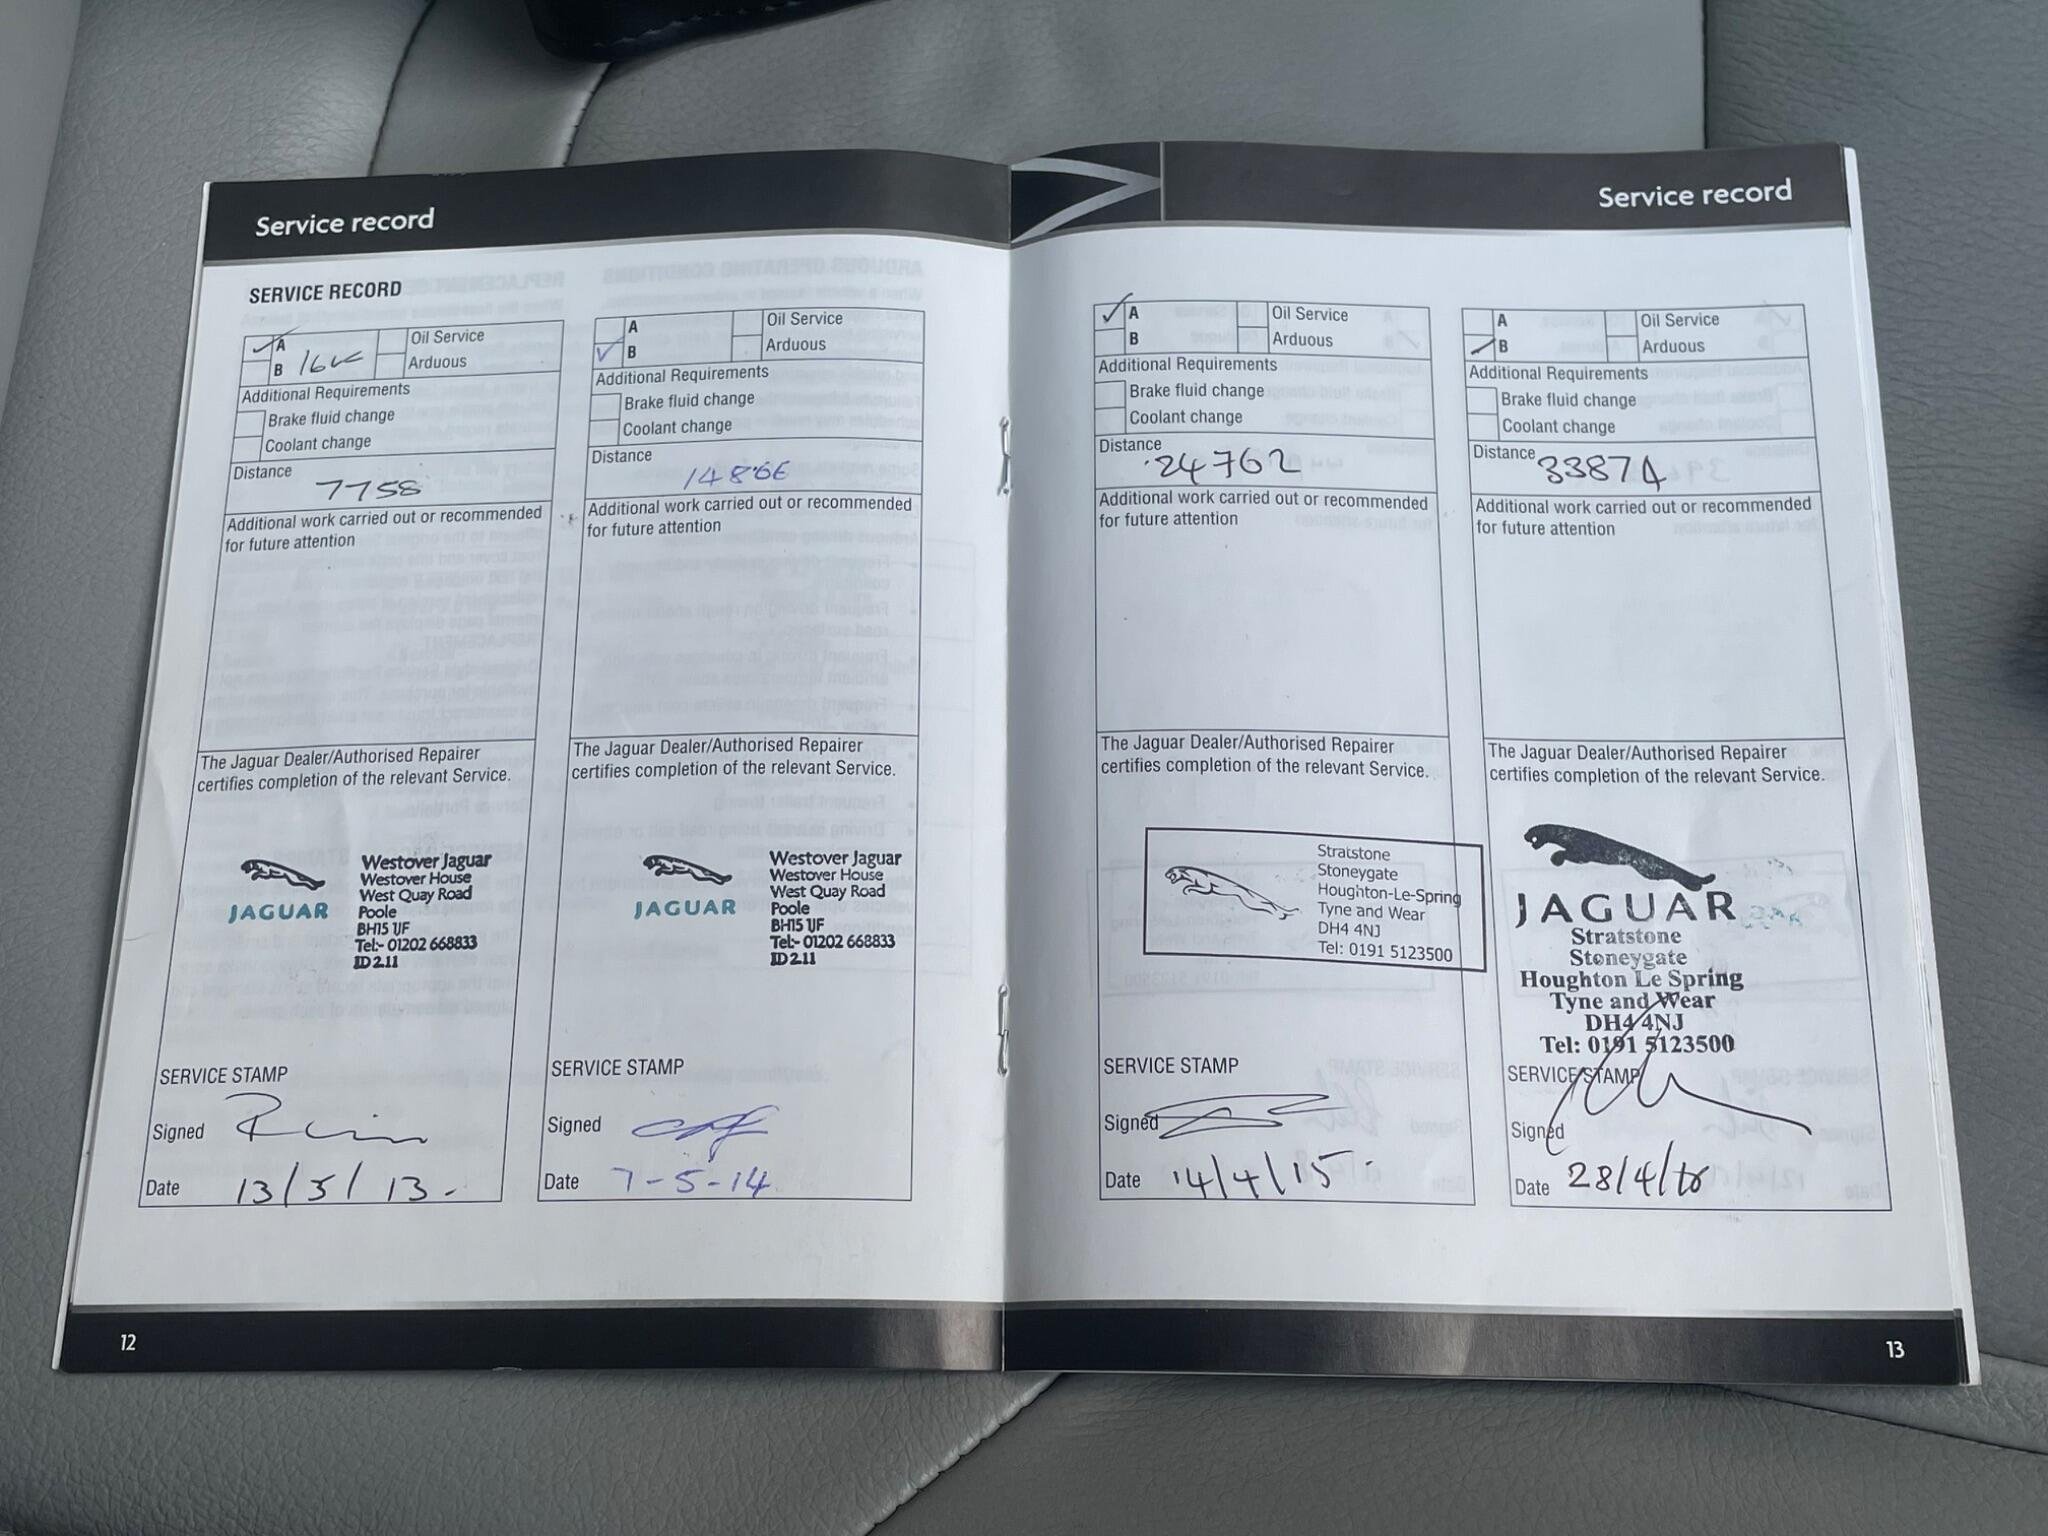 Service record
SERVICE RECORD
A
B 16K
Oil Service
Arduous
Additional Requirements
Brake fluid change
Coolant change
Distance
7758
Additional work carried out or recommended
for future attention
The Jaguar Dealer/Authorised Repairer
certifies completion of the relevant Service.
JAGUAR
Westover Jaguar
Westover House
West Quay Road
Poole
BH15 1JF
Tel:- 01202 668833
ID211
SERVICE STAMP
Signed
Date 13/5/13.
A
B
Oil Service
Arduous
Additional Requirements
Brake fluid change
Coolant change
Distance
14866
Additional work carried out or recommended
for future attention
The Jaguar Dealer/Authorised Repairer
certifies completion of the relevant Service.
JAGUAR
Westover Jaguar
Westover House
West Quay Road
Poole
BH15 1JF
Tel:- 01202 668833
ID211
SERVICE STAMP
Signed
Date 7-5-14
12
Service record
A
B
Oil Service
Arduous
Additional Requirements
Brake fluid change
Coolant change
Distance
24762
Additional work carried out or recommended
for future attention
The Jaguar Dealer/Authorised Repairer
certifies completion of the relevant Service.
Stratstone
Stoneygate
Houghton-Le-Spring
Tyne and Wear
DH4 4NJ
Tel: 0191 5123500
SERVICE STAMP
Signed
Date 14/4/15.
A
B
Oil Service
Arduous
Additional Requirements
Brake fluid change
Coolant change
Distance
33874
Additional work carried out or recommended
for future attention
The Jaguar Dealer/Authorised Repairer
certifies completion of the relevant Service.
JAGUAR
Stratstone
Stoneygate
Houghton Le Spring
Tyne and Wear
DH4 4NJ
Tel: 0191 5123500
SERVICE STAMP
Signed
Date 28/4/16
13